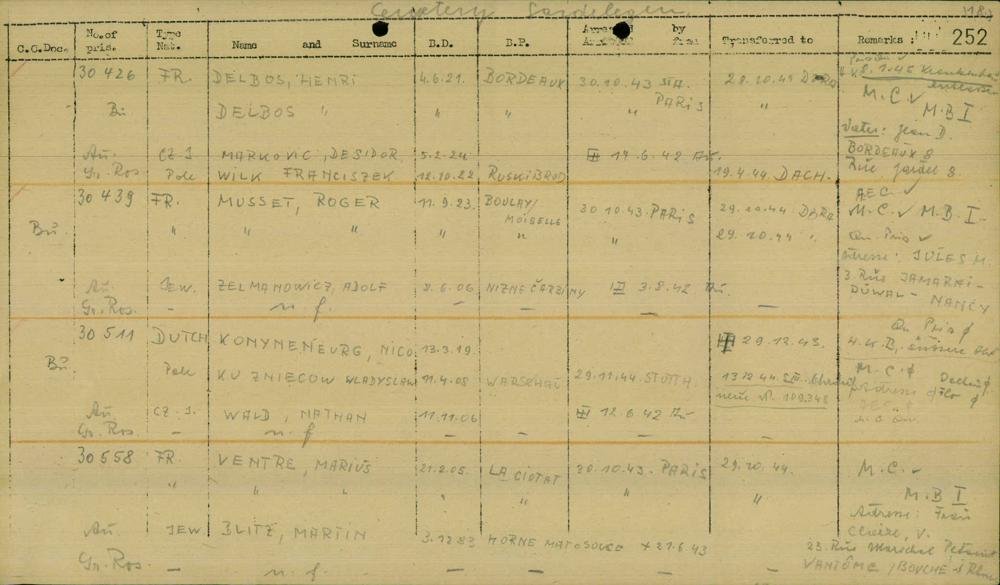 Cemetery Gardelegen
C.C.Doc. No.of pris. Type Nat. Name and Surname B.D. B.P. by Transferred to Remarks: 252
30 426 FR. DELBOS, HENRI 4.6.21. BORDEAUX 30.10.43 PARIS 28.10.44 DORA
Bu DELBOS " " " " "
M.C. ✓
M.B I
Vater: Jean D.
BORDEAUX 8
Au. CZ-J MARKOVIC, DESIDOR 5.2.24 III 17.6.42 Au.
Gr. Ros Pole WILK FRANCISZEK 12.10.22 RUSKIBROD 19.4.44. DACH.
Rue Jardel 8.
30 439 FR. MUSSET, ROGER 11.9.23. BOULAY/ MOISELLE 30.10.43. PARIS 29.10.44 DORA
AEC ✓
M.C. ✓ M.B I
Bu. " " " " " 29.10.44 "
Adresse: JULES M.
3 Rue JAMARAI-
DUWAL - NANCY
Au. JEW. ZELMANOWICZ, ADOLF 8.6.06 3.8.42 Au. —
Gr. Ros. — n. f. — — — —
30 511 DUTCH KONYNENEURG, NICO 13.3.19. 29.12.43.
Bu. Pole KUZNIECOW WLADYSLAW 11.4.08 WARSCHAU 29.11.44 STUTTH. 13.12.44
neue № 109.348
M.C. ∮
Au. CZ-J. WALD, NATHAN 11.11.06 III 12.6.42 Au
Gr. Ros. — n. f. — — — —
30 558 FR. VENTRE, MARIUS 21.2.05. LA CIOTAT 30.10.43. PARIS 29.10.44. M.C. ✓
" " " " " " "
M.B I
Adresse: Frau
Au. JEW BLITZ, MARTIN 3.12.83 + 21.6.43
23 Rue Marechal Petain
Gr. Ros. — n. f. — — — —